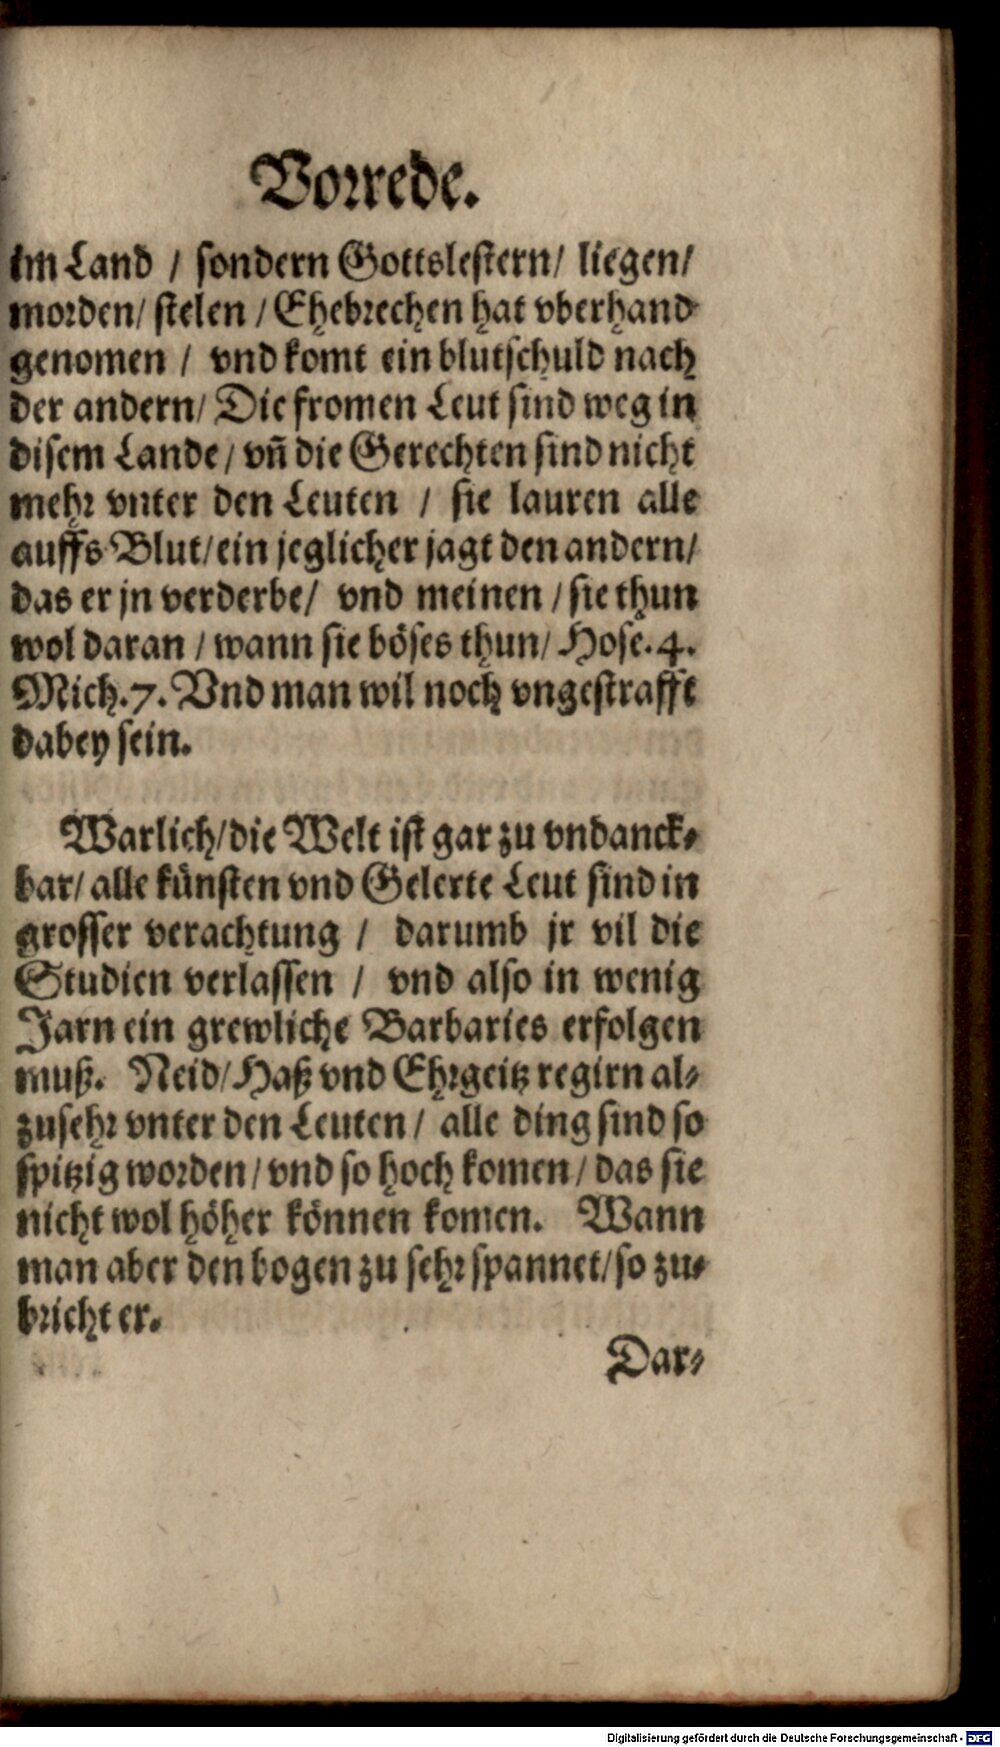 Vorrede.
im Land / sondern Gottslestern/ liegen/
morden/ stelen / Ehebrechen hat vberhand
genomen / vnd komt ein blutschuld nach
der andern/ Die fromen Leut sind weg in
disem Lande/ vñ die Gerechten sind nicht
mehr vnter den Leuten / sie lauren alle
auffs Blut/ ein jeglicher jagt den andern/
das er jn verderbe/ vnd meinen / sie thun
wol daran / wann sie böses thun/ Hose. 4.
Mich. 7. Vnd man wil noch vngestrafft
dabey sein.
Warlich/ die Welt ist gar zu vndanck-
bar/ alle künsten vnd Gelerte Leut sind in
grosser verachtung / darumb jr vil die
Studien verlassen / vnd also in wenig
Jarn ein grewliche Barbaries erfolgen
muß. Neid/ Haß vnd Ehrgeitz regirn al-
zusehr vnter den Leuten/ alle ding sind so
spitzig worden/ vnd so hoch komen/ das sie
nicht wol höher können komen. Wann
man aber den bogen zu sehr spannet/ so zu-
bricht er.
Dar-
Digitalisierung gefördert durch die Deutsche Forschungsgemeinschaft - DFG